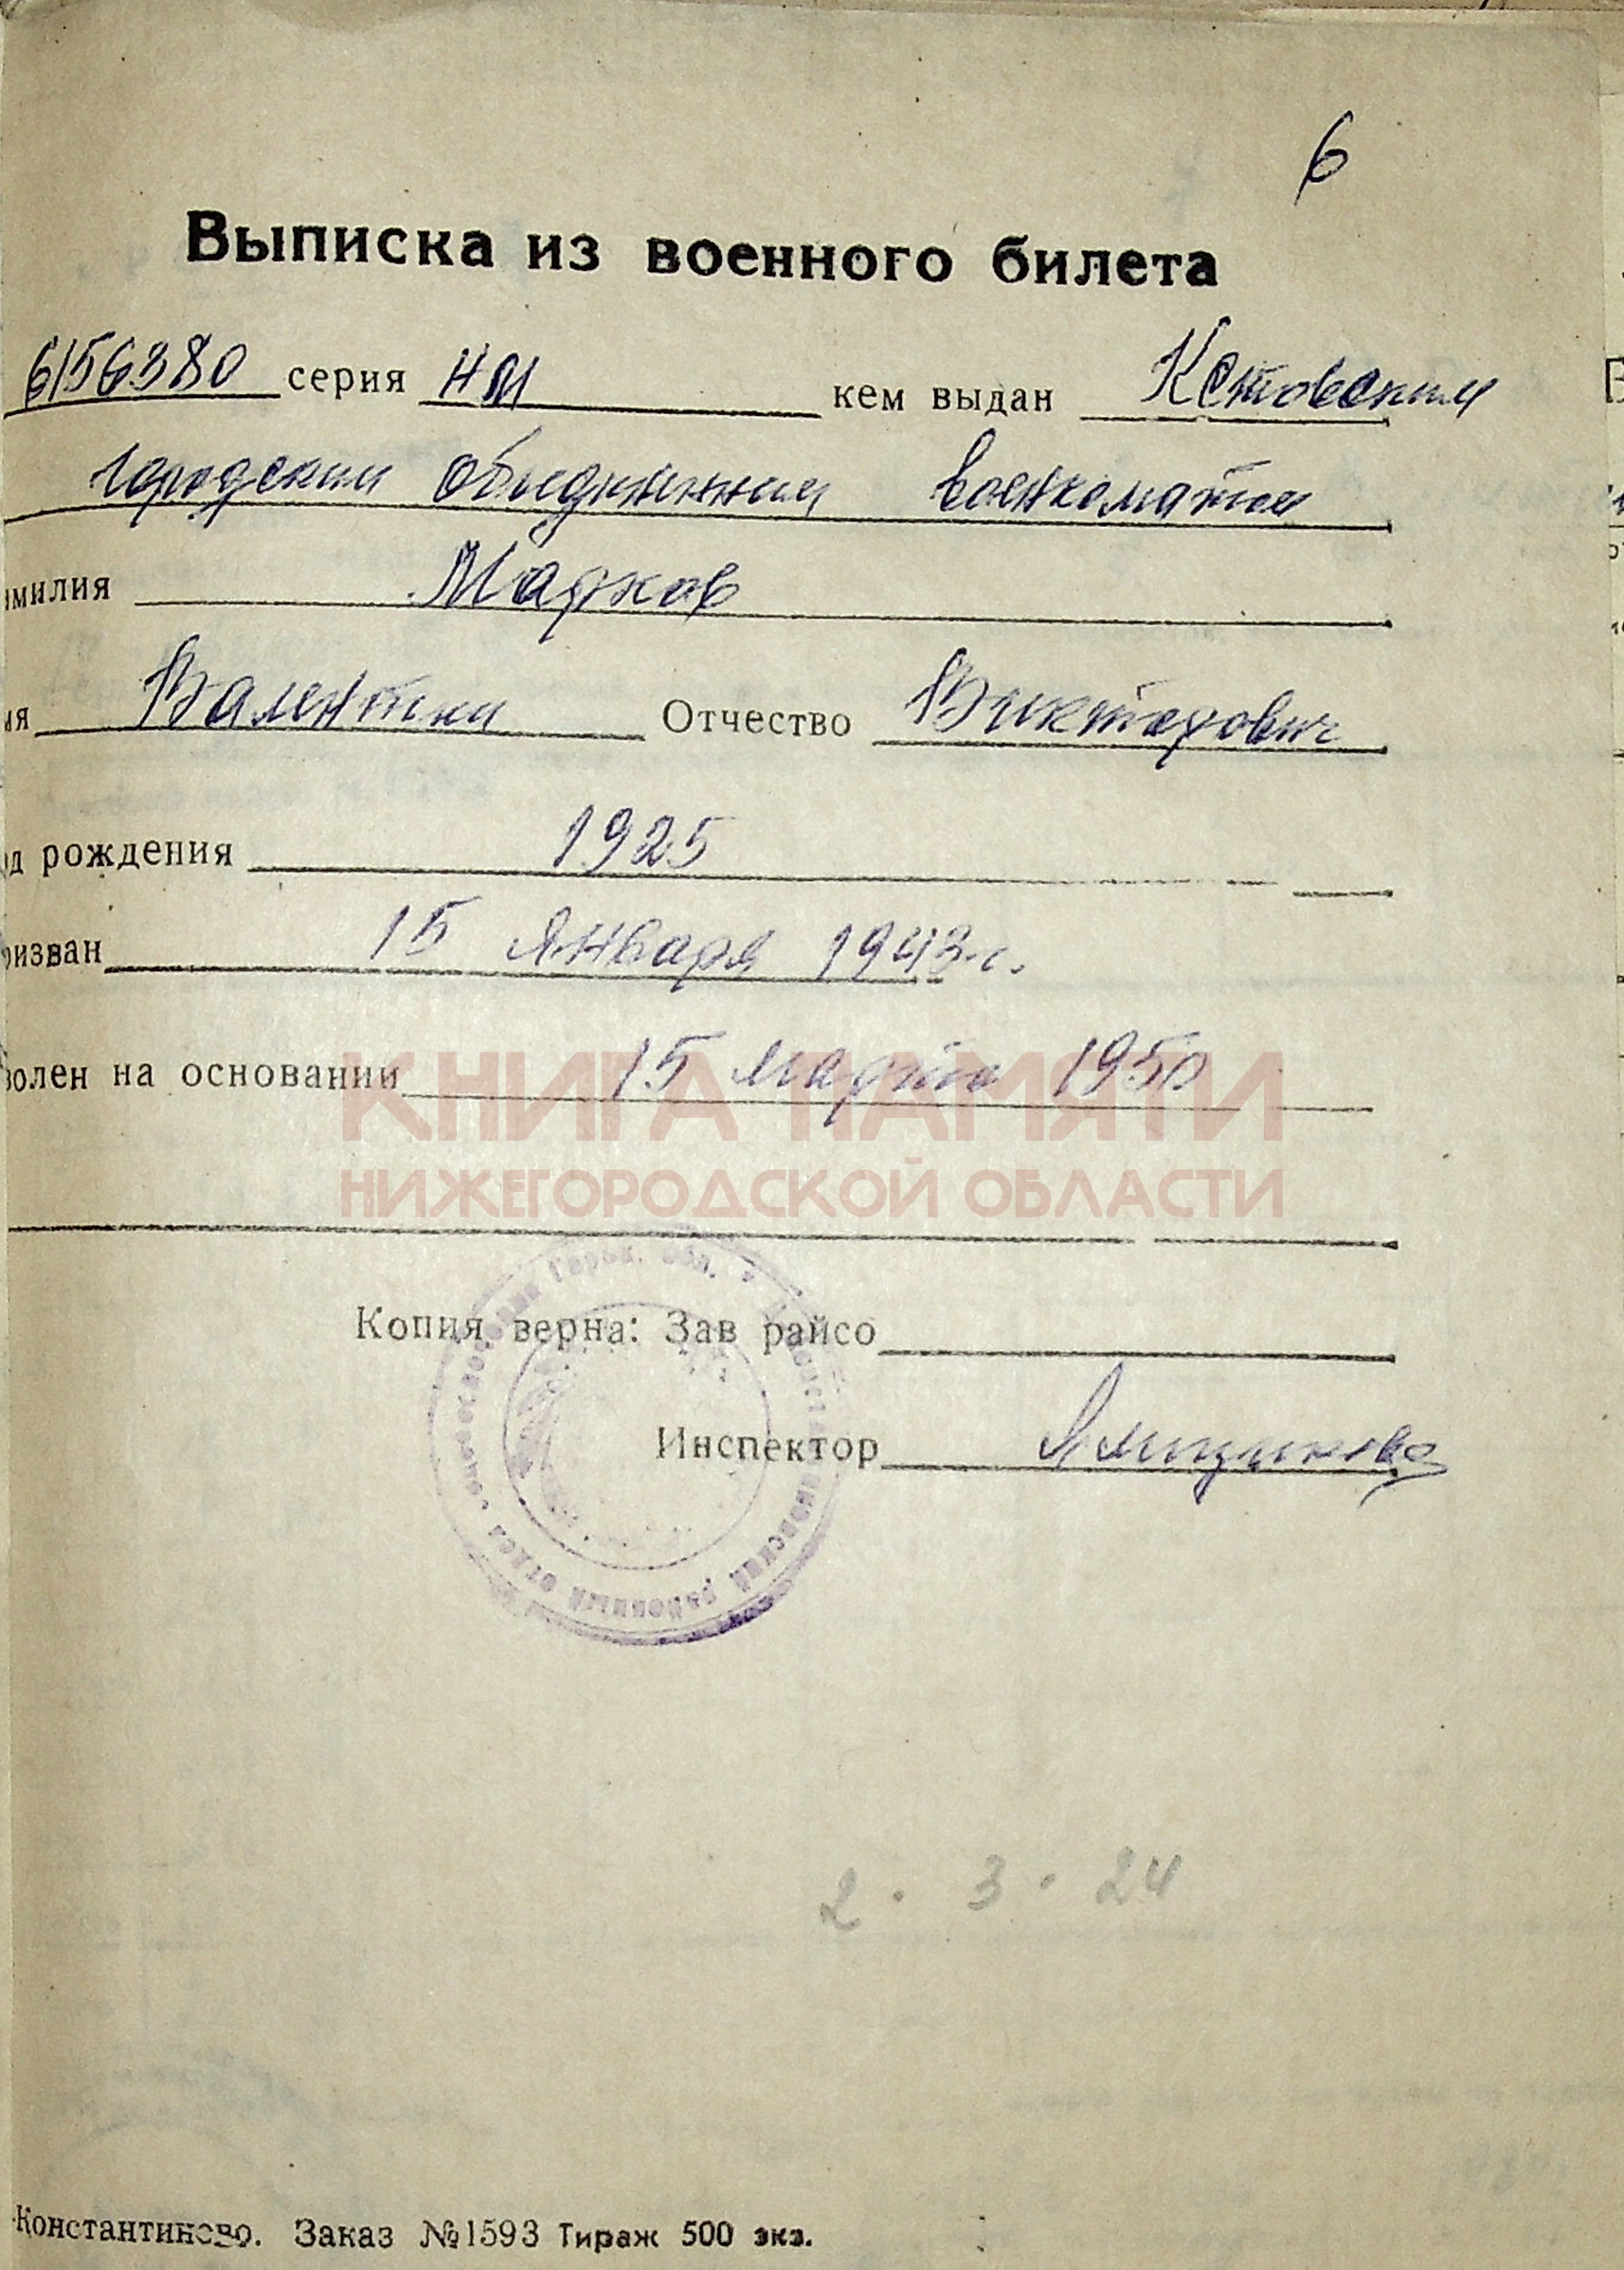 6
Выписка из военного билета
6156380 серия НМ кем выдан Кстовским
городским объединенным военкоматом
милия Марков
ия Валентин Отчество Викторович
д рождения 1925
ризван 15 января 1943 г.
волен на основании 15 марта 1950
КНИГА ПАМЯТИ
НИЖЕГОРОДСКОЙ ОБЛАСТИ
Копия верна: Зав райсо
Инспектор
районный отдел
2. 3. 24
Константиново. Заказ №1593 Тираж 500 экз.